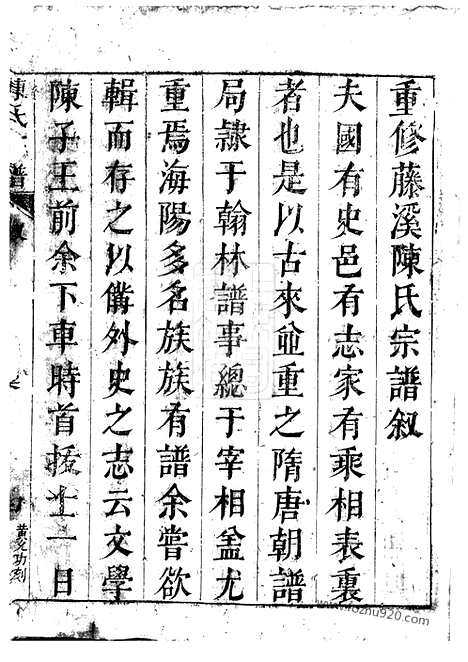 重修藤溪陳氏宗譜叙
夫國有史邑有志家有乘相表裏
者也是以古來並重之隋唐朝譜
局隷于翰林譜事總于宰相盖尤
重焉海陽多名族族有譜余嘗欲
輯而存之以備外史之志云文學
陳子王前余下車時首拔士一日
陳氏 譜
黄文功刻
www.fozhu920.com